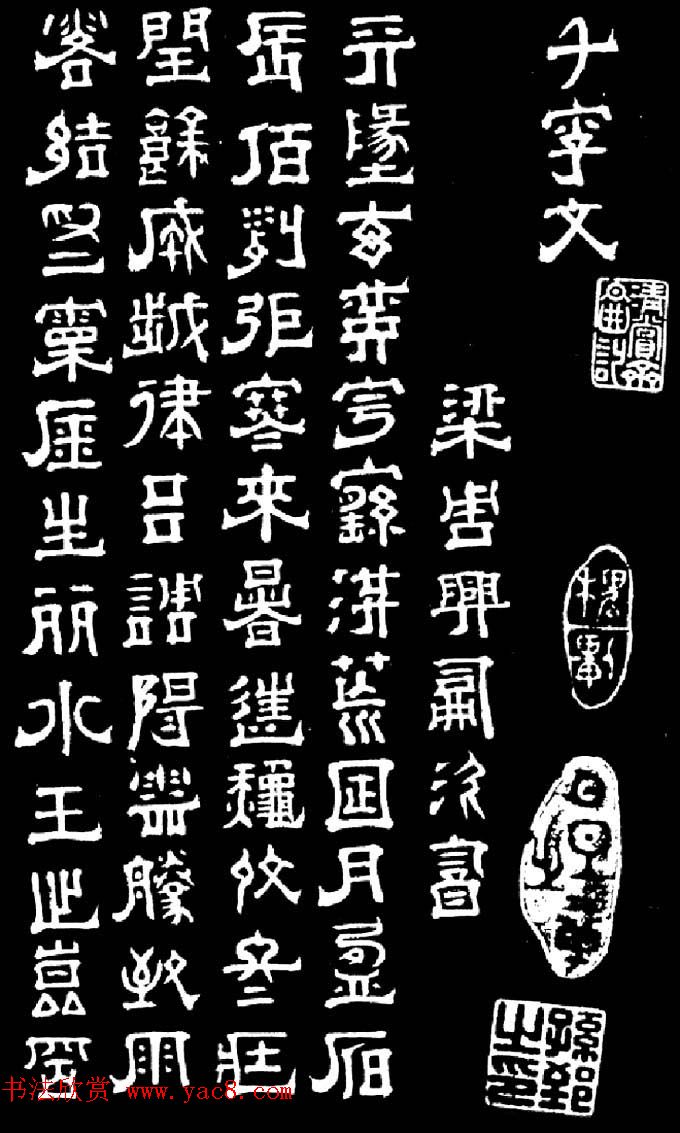 千字文
梁周興嗣次
天地玄黃宇宙洪荒日月盈昃
辰宿列張寒來暑往秋收冬藏
閏餘成歲律呂調陽雲騰致雨
露結爲霜金生麗水玉出崑岡
书法欣赏 www.yac8.com